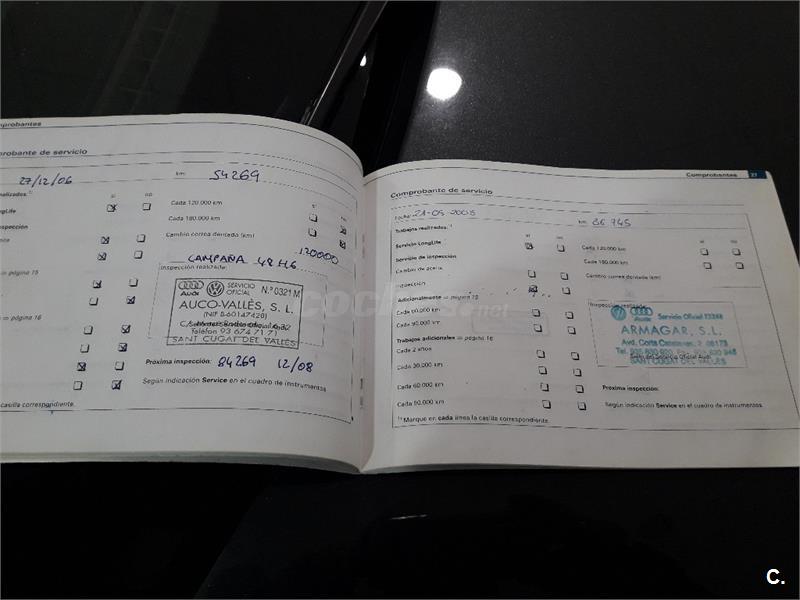 mprobantes
probante de servicio
27/12/06 km: 54269
ealizados:¹⁾ sí no
ngLife
pección
Cada 120.000 km
Cada 180.000 km
Cambio correa dentada (km)
120000
CAMPAÑA 48H6
Inspección realizada:
Audi SERVICIO OFICIAL N.º 0321 M
AUCO-VALLÈS, S. L.
(NIF B-60147420)
Teléfono 93 674 71 71
SANT CUGAT DEL VALLÈS
⇒ página 15
⇒ página 16
Próxima inspección: 84269 12/08
Según indicación Service en el cuadro de instrumentos
casilla correspondiente.
Comprobantes 27
Comprobante de servicio
Fecha: km: 86 745
Trabajos realizados:¹⁾ sí no sí no
Servicio LongLife
Servicio de inspección
Cambio de aceite
Inspección
Adicionalmente ⇒ página 15
Cada 60.000 km
Cada 90.000 km
Trabajos adicionales ⇒ página 16
Cada 2 años
Cada 30.000 km
Cada 60.000 km
Cada 90.000 km
Cada 120.000 km
Cada 180.000 km
Cambio correa dentada (km)
Inspección realizada:
Audi Servicio Oficial
ARMAGAR, S.L.
Avd. Corts Catalanes, 2 08173
SANT CUGAT DEL VALLES
Próxima inspección:
Según indicación Service en el cuadro de instrumentos
¹⁾ Marque en cada línea la casilla correspondiente.
coches.net
C.